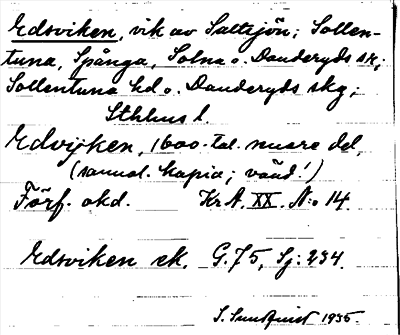 Edsviken, vik av Saltsjön; Sollen-
tuna, Spånga, Solna o. Danderyds sk;
Sollentuna hd o. Danderyds skg;
Sthlms l.
Edvijken, 1600-tal. nuare del,
(samal. kopia; vänd!)
Förf. okd. Kr A. XX. N:o 14.
Edsviken ek. G. 75, Sj: 234.
S. Sundquist 1935.